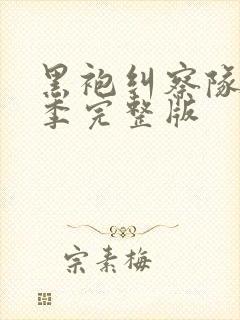 黑袍纠察队
季完整版
宗素梅